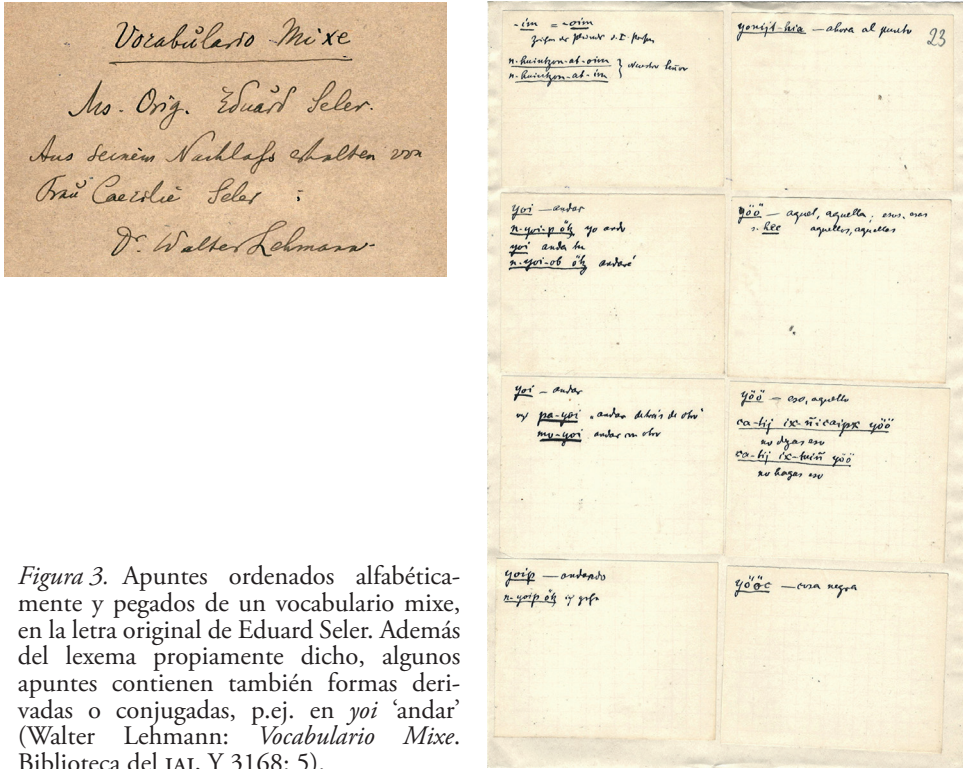 Vocabulario Mixe
Ms. Orig. Eduard Seler.
Aus seinem Nachlaß erhalten von
Frau Caecilie Seler :
Dr. Walter Lehmann
Figura 3. Apuntes ordenados alfabética-
mente y pegados de un vocabulario mixe,
en la letra original de Eduard Seler. Además
del lexema propiamente dicho, algunos
apuntes contienen también formas deri-
vadas o conjugadas, p.ej. en yoi ‘andar’
(Walter Lehmann: Vocabulario Mixe.
Biblioteca del IAI, Y 3168: 5).
-im = -oim
n-huintzon-at-oim
n-huintzon-at-im } nuestro Señor
yoi — andar
n-yoi-p ötz yo ando
yoi anda tu
n-yoi-ob ötz andaré
yoi — andar
pa-yoi andar detrás de otro
mo-yoi andar con otro
yoip — andando
n-yoip ötz ich gehe
— ahora al punto
23
yöö — aquel, aquella, esos, esas
s. hee aquellos, aquellas
yöö — eso, aquello
ca-tij ix-ñicaipx yöö
no digas eso
ca-tij ix-tuiñ yöö
no hagas eso
yööc — cosa negra